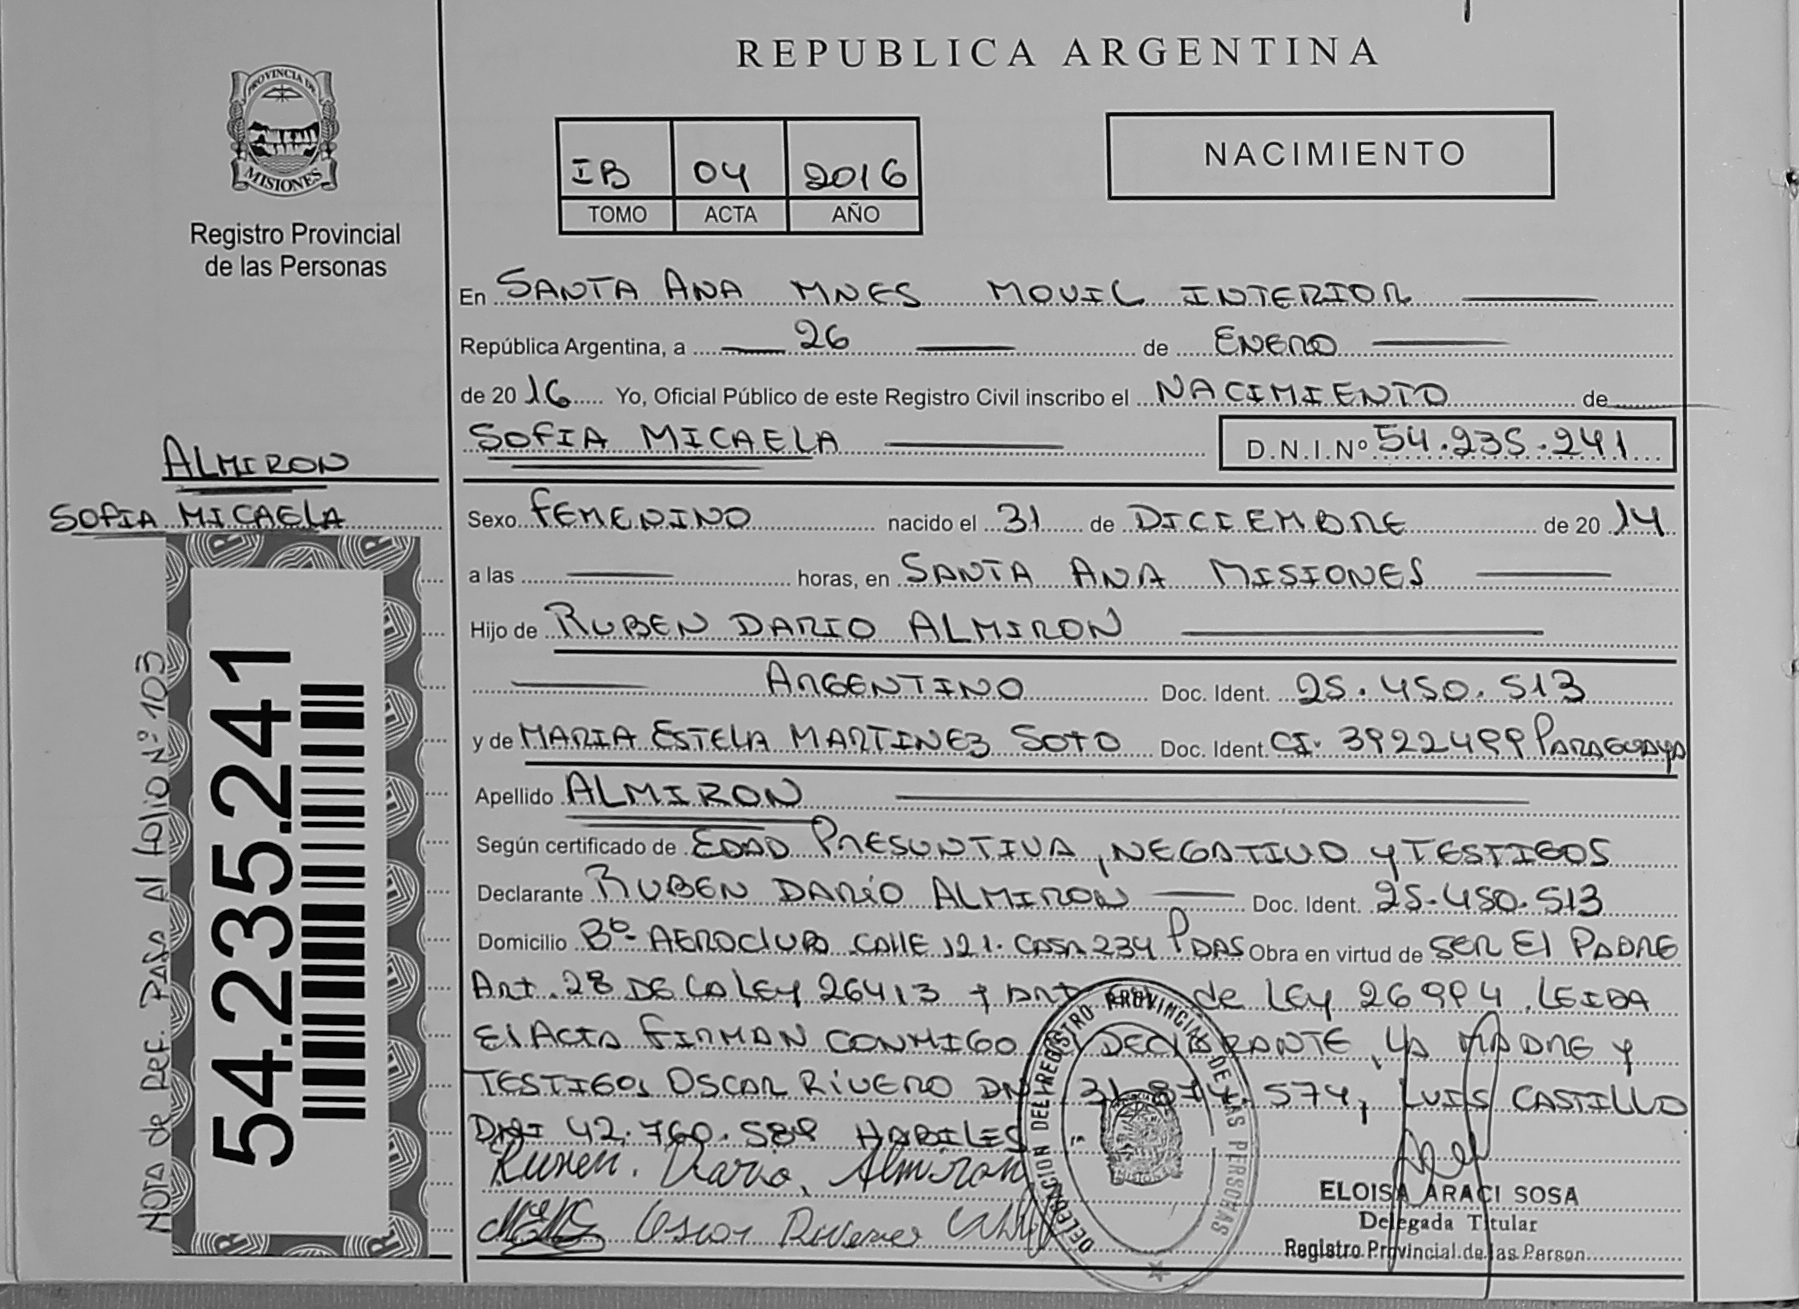 REPUBLICA ARGENTINA
PROVINCIA DE
MISIONES
Registro Provincial
de las Personas
IB 04 2016
TOMO ACTA AÑO
NACIMIENTO
En SANTA ANA MNES MOVIL INTERIOR
República Argentina, a 26 de ENERO
de 2016 Yo, Oficial Público de este Registro Civil inscribo el NACIMIENTO de
SOFIA MICAELA D.N.I.Nº 54.235.241
ALMIRON
SOFIA MICAELA
Sexo FEMENINO nacido el 31 de DICIEMBRE de 2014
a las horas, en SANTA ANA MISIONES
Hijo de RUBEN DARIO ALMIRON
ARGENTINO Doc. Ident. 25.450.513
y de MARIA ESTELA MARTINEZ SOTO Doc. Ident. CI. 3922499 PARAGUAYA
Apellido ALMIRON
Según certificado de EDAD PRESUNTIVA, NEGATIVO y TESTIGOS
Declarante RUBEN DARIO ALMIRON Doc. Ident. 25.450.513
Domicilio Bº AEROCLUB CALLE 121. CASA 234 PDAS Obra en virtud de SER El PADRE
Art. 28 DE LA LEY 26413 y Art de LEY 26994. LEIDA
El ACTA FIRMAN CONMIGO El DECLARANTE, LA MADRE y
TESTIGOS OSCAR RIVERO DNI 31.874.574, LUIS CASTILLO
DNI 42.760.589 HABILES
Ruben. Dario. Almiron
Oscar
DELEGACION DEL REGISTRO PROVINCIAL DE LAS PERSONAS
ELOISA ARACI SOSA
Delegada Titular
Registro Provincial de las Person
54.235.241
NOTA de REF. PASA Al folio Nº 103